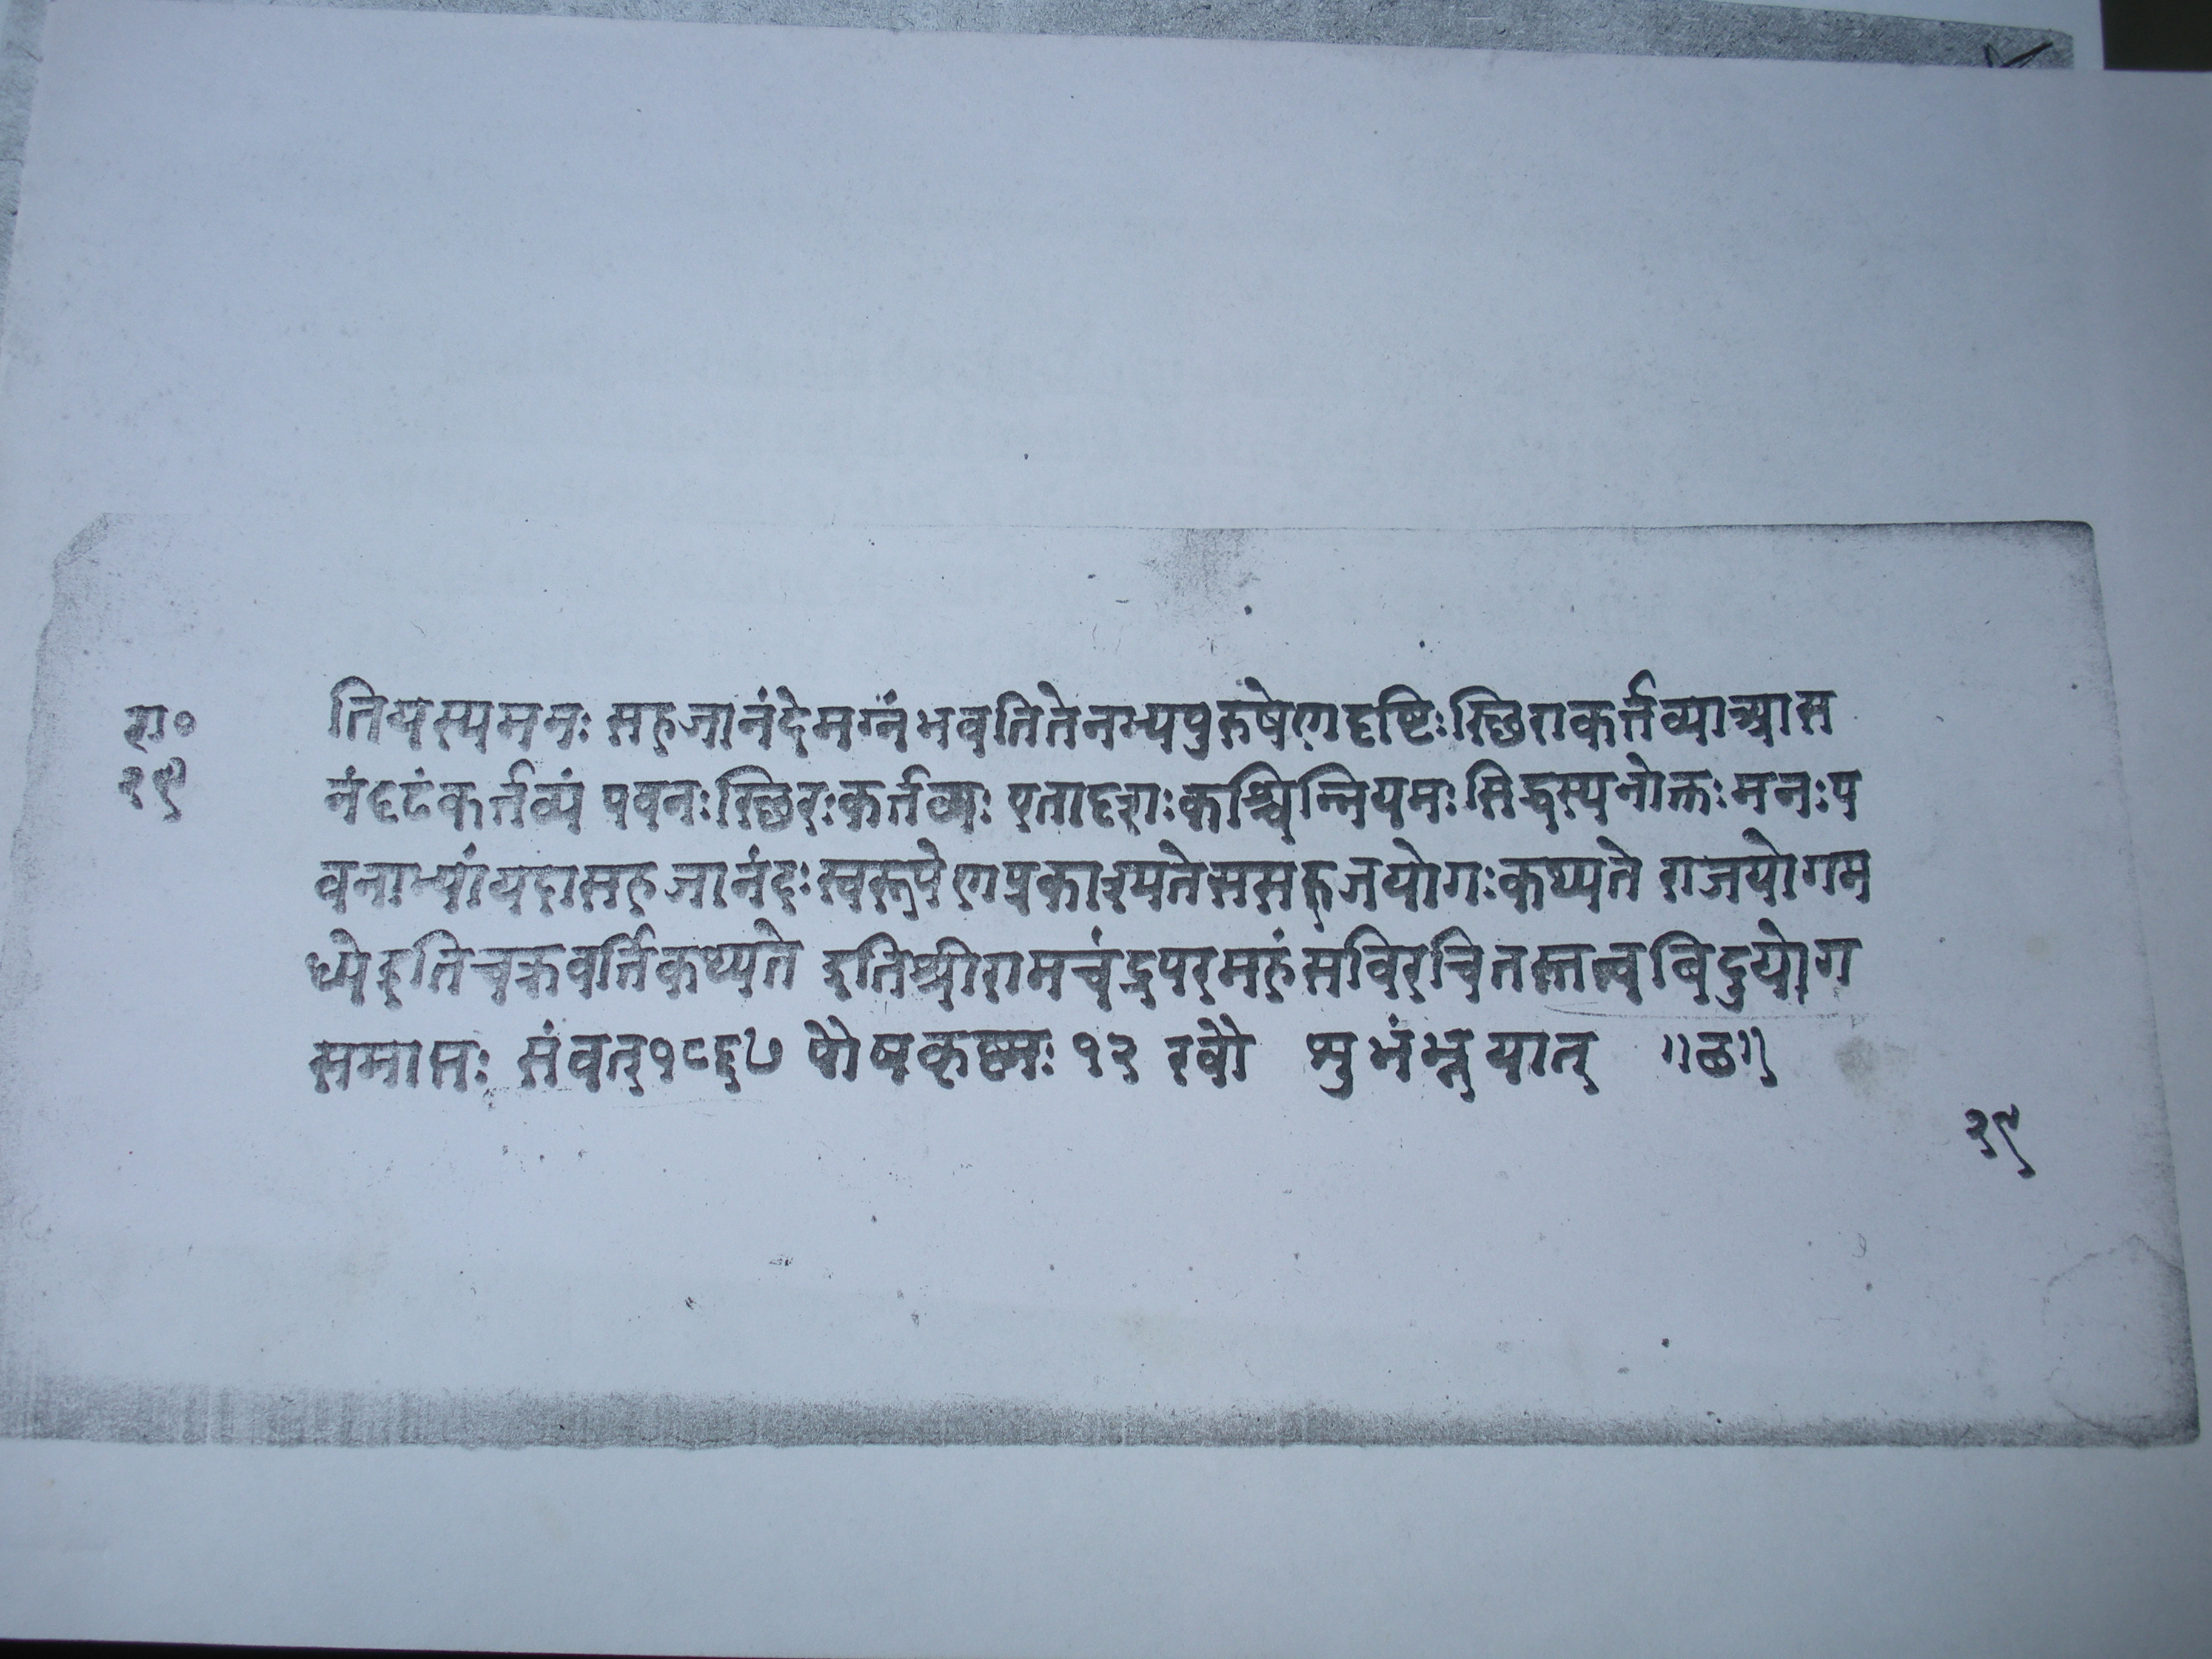 रा०
२९
तियस्यमनः सहजानंदेमग्नंभवतितेनभ्यपुरुषेणदृष्टिःस्छिराकर्त्तव्याआस
नंदृढंकर्त्तव्यं पवनःस्छिरःकर्त्तव्यः एतादृशःकश्चिन्नियमःसिद्धस्यनोक्तःमनःप
वनाभ्यांयदासहजानंदःस्वरूपेणप्रकाश्यतेससहजयोगःकथ्यते राजयोगम
ध्येइतिचक्रवर्त्तिकथ्यते इतिश्रीरामचंद्रपरमहंसविरचितस्तत्त्वबिंदुयोग
समाप्तः संवत्१८६७ पौषकृष्णः १२ रवौ शुभंभूयात् ॥ठ॥
२९